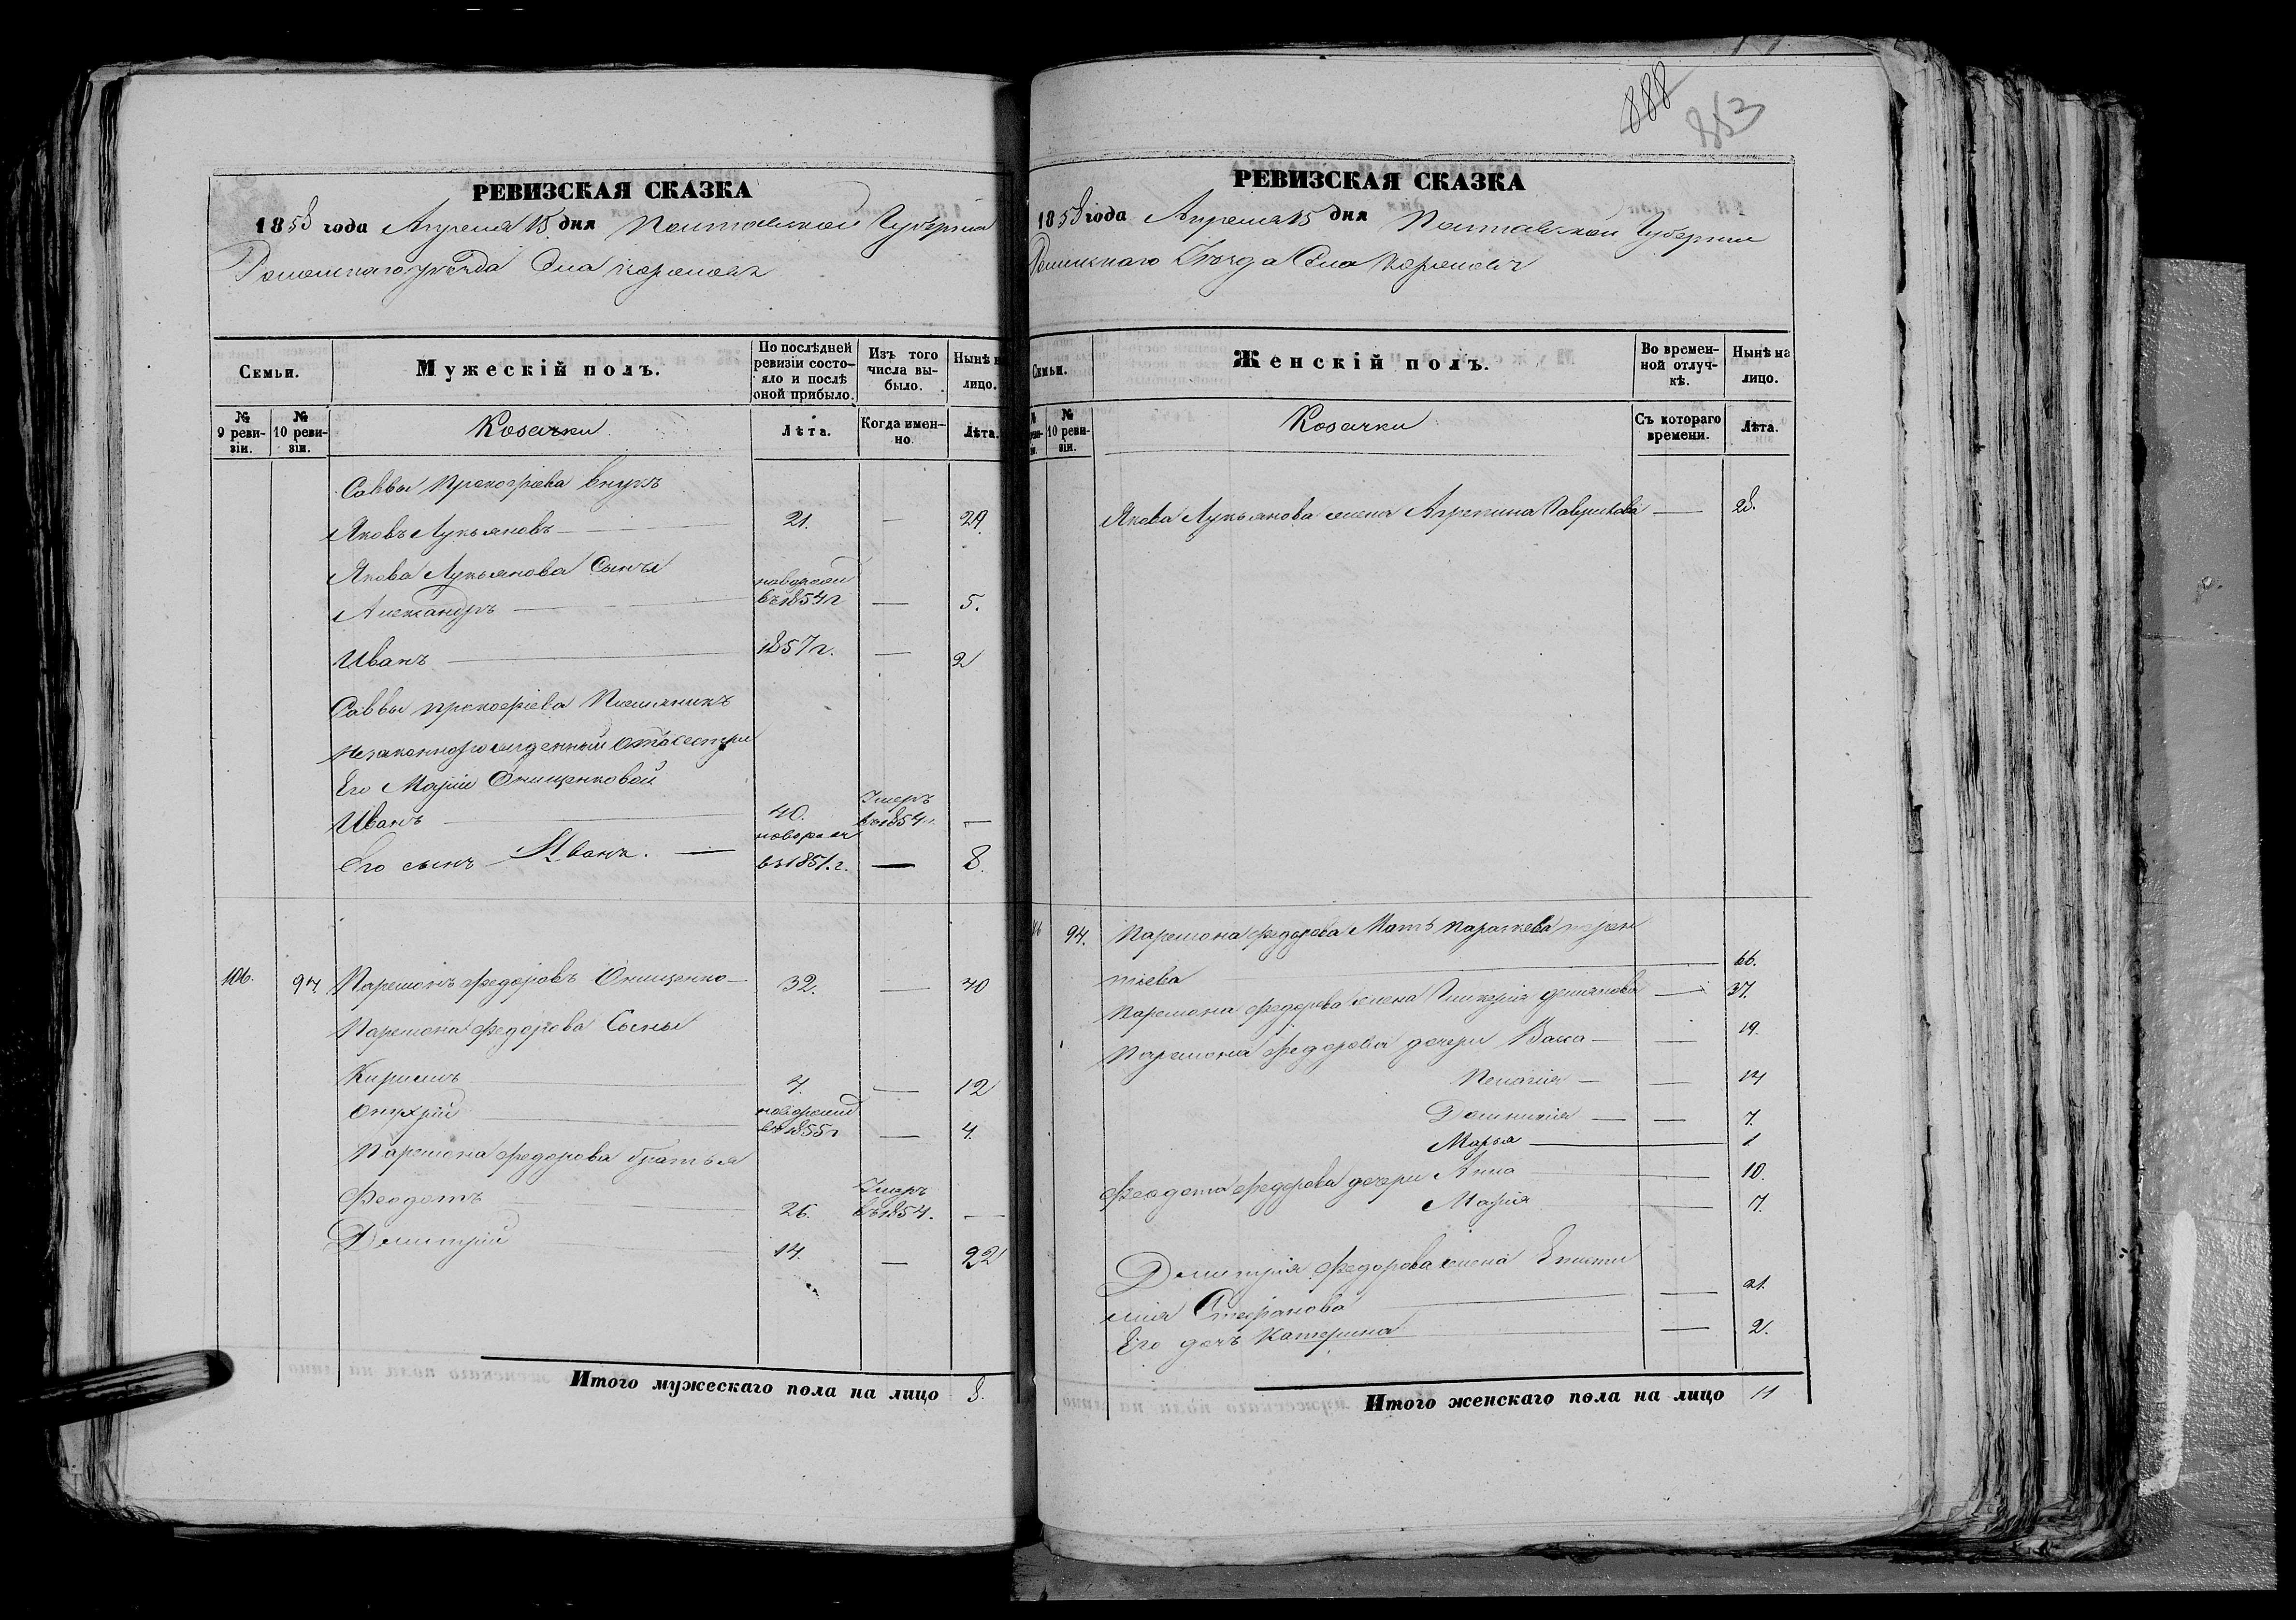 888
853
РЕВИЗСКАЯ СКАЗКА
1858 года Апреля 15 дня Полтавской Губернии
Роменскаго уезда Села
Семьи.
Мужескій полъ.
По послѣдней ревизіи состояло и послѣ оной прибыло.
Изъ того числа выбыло.
Нынѣ на лицо.
№ 9 ревизіи.
№ 10 ревизіи.
Козачки
Лѣта.
Когда именно.
Лѣта.
Саввы Прокофіева внукъ
Яковъ Лукьяновъ 21. — 29.
Якова Лукьянова Сыны
Александръ въ 1854 г — 5.
Иванъ 1857 г. — 2
Саввы прокофіева Племяникъ
незаконнорожденный отъ сестры
Его Маріи Онищенковой
Иванъ 40. Умеръ въ 1854 г. —
Его сынъ Иванъ. — въ 1851. г. — 8.
106. 94. Парѳмонъ Федоровъ Онищенко 32. — 40
Парѳмона Федорова Сыны
Кирилъ 4. — 12
Онуфрій въ 1855 г — 4.
Парѳмона Федорова братья
Феодотъ 26. Умеръ въ 1854. —
Дмитрій 14. — 22
Итого мужескаго пола на лицо 8.
РЕВИЗСКАЯ СКАЗКА
1858 года Апреля 15 дня Полтавской Губернии
Роменскаго Уезда Села
Семьи.
Женскій полъ.
Во временной отлучкѣ.
Нынѣ на лицо.
№ 10 ревизіи.
Козачки
Съ котораго времени.
Лѣта.
Якова Лукьянова жена Агрепина Гаврилова — 28.
94. Парѳмона Федорова Мать Параскева терен
тіева 66.
Парѳмона Федорова жена Гликерія демянова — 37.
Парѳмона Федорова дочери Васса — — 19.
Пелагія — — 14
Домникія — — 7.
Марѳа — 1
Феодота Федорова дочери Анна — 10.
Марія — 7.
Дмитрія Федорова жена Еписти
мія Стефанова — 21.
Его дочь Катерина — 2.
Итого женскаго пола на лицо 11